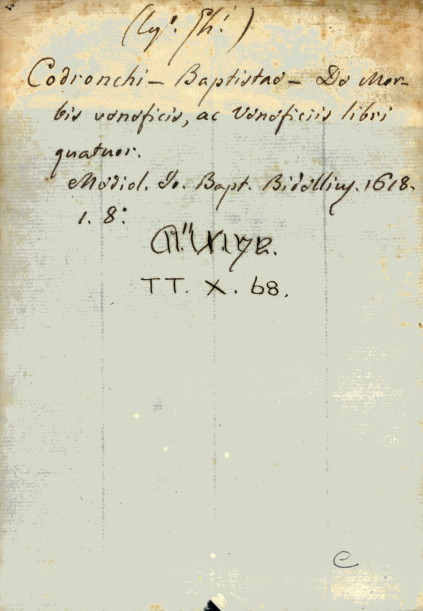 Codronchi - Baptistae - De Mor-
bis veneficis, ac Veneficiis libri
quatuor.
Mediol. Jo. Bapt. Bidellium. 1618.
1. 8.°
TT. X. 68.
e